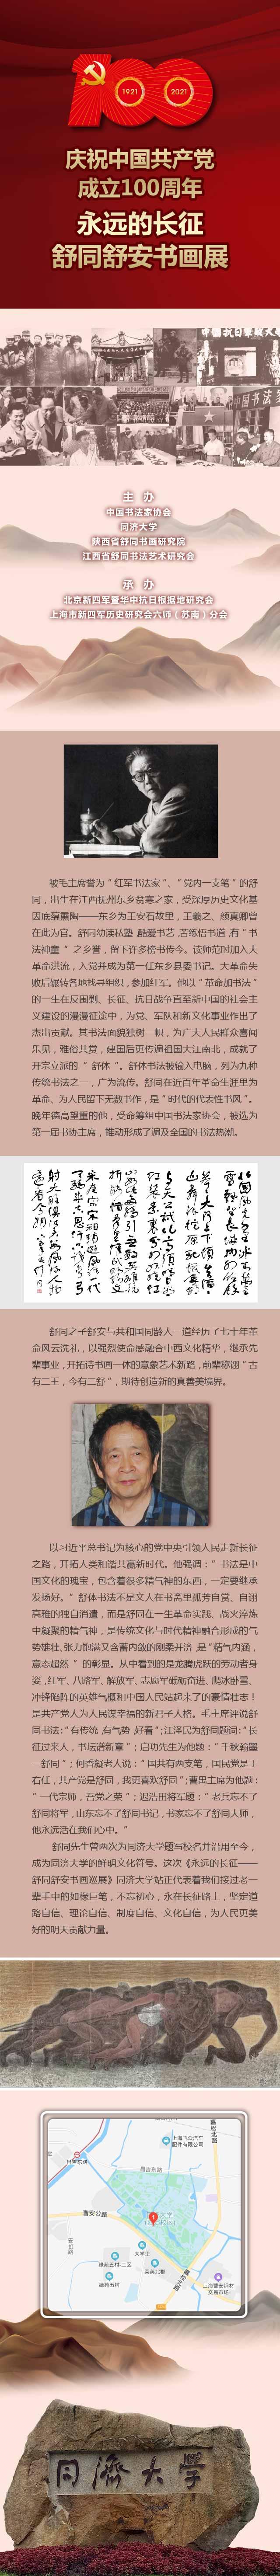 100
1921
2021
庆祝中国共产党
成立100周年
永远的长征
舒同舒安书画展
主 办
中国书法家协会
同济大学
陕西省舒同书画研究院
江西省舒同书法艺术研究会
承 办
北京新四军暨华中抗日根据地研究会
上海市新四军历史研究会六师（苏南）分会
被毛主席誉为“红军书法家”、“党内一支笔”的舒
同，出生在江西抚州东乡贫寒之家，受深厚历史文化基
因底蕴熏陶——东乡为王安石故里，王羲之、颜真卿曾
在此为官。舒同幼读私塾，酷爱书艺，苦练悟书道，有“书
法神童”之乡誉，留下许多榜书传今。读师范时加入大
革命洪流，入党并成为第一任东乡县委书记。大革命失
败后辗转各地找寻组织，参加红军。他以“革命加书法”
的一生在反围剿、长征、抗日战争直至新中国的社会主
义建设的漫漫征途中，为党、军队和新文化事业作出了
杰出贡献。其书法面貌独树一帜，为广大人民群众喜闻
乐见，雅俗共赏，建国后更传遍祖国大江南北，成就了
开宗立派的“舒体”。舒体书法被输入电脑，列为九种
传统书法之一，广为流传。舒同在近百年革命生涯里为
革命、为人民留下无数书作，是“时代的代表性书风”。
晚年德高望重的他，受命筹组中国书法家协会，被选为
第一届书协主席，推动形成了遍及全国的书法热潮。
舒同之子舒安与共和国同龄人一道经历了七十年革
命风云洗礼，以强烈使命感融合中西文化精华，继承先
辈事业，开拓诗书画一体的意象艺术新路，前辈称诩“古
有二王，今有二舒”，期待创造新的真善美境界。
以习近平总书记为核心的党中央引领人民走新长征
之路，开拓人类和谐共赢新时代。他强调：“书法是中
国文化的瑰宝，包含着很多精气神的东西，一定要继承
发扬好。”舒体书法不是文人在书斋里孤芳自赏、自诩
高雅的独自消遣，而是舒同在一生革命实践、战火淬炼
中凝聚的精气神，是传统文化与时代精神融合形成的气
势雄壮，张力饱满又含蓄内敛的刚柔并济，是“精气内涵，
意态超然”的彰显。从中看到的是龙腾虎跃的劳动者身
姿，红军、八路军、解放军、志愿军砥砺奋进、爬冰卧雪、
冲锋陷阵的英雄气概和中国人民站起来了的豪情壮志！
是共产党人为人民谋幸福的新君子人格。毛主席评说舒
同书法：“有传统，有气势，好看”；江泽民为舒同题词：“长
征过来人，书坛谱新章”；启功先生为他题：“千秋翰墨
一舒同”；何香凝老人说：“国共有两支笔，国民党是于
右任，共产党是舒同，我更喜欢舒同”；曹禺主席为他题：
“一代宗师，吾党之荣”；迟浩田将军题：“老兵忘不了
舒同将军，山东忘不了舒同书记，书家忘不了舒同大师，
他永远活在我们心中。”
舒同先生曾两次为同济大学题写校名并沿用至今，
成为同济大学的鲜明文化符号。这次《永远的长征——
舒同舒安书画巡展》同济大学站正代表着我们接过老一
辈手中的如椽巨笔，不忘初心，永在长征路上，坚定道
路自信、理论自信、制度自信、文化自信，为人民更美
好的明天贡献力量。
上海飞众汽车
配件有限公司
嘉松北路
昌吉东路
昌吉东路
曹安公路
安虹路
绿苑五村-二区
大学里
绿苑五村
嘉英北郡
上海曹安钢材
交易市场
同濟大學